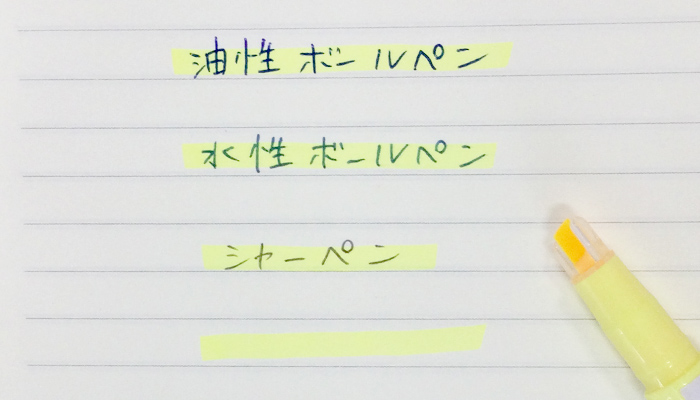 油性ボールペン
水性ボールペン
シャーペン